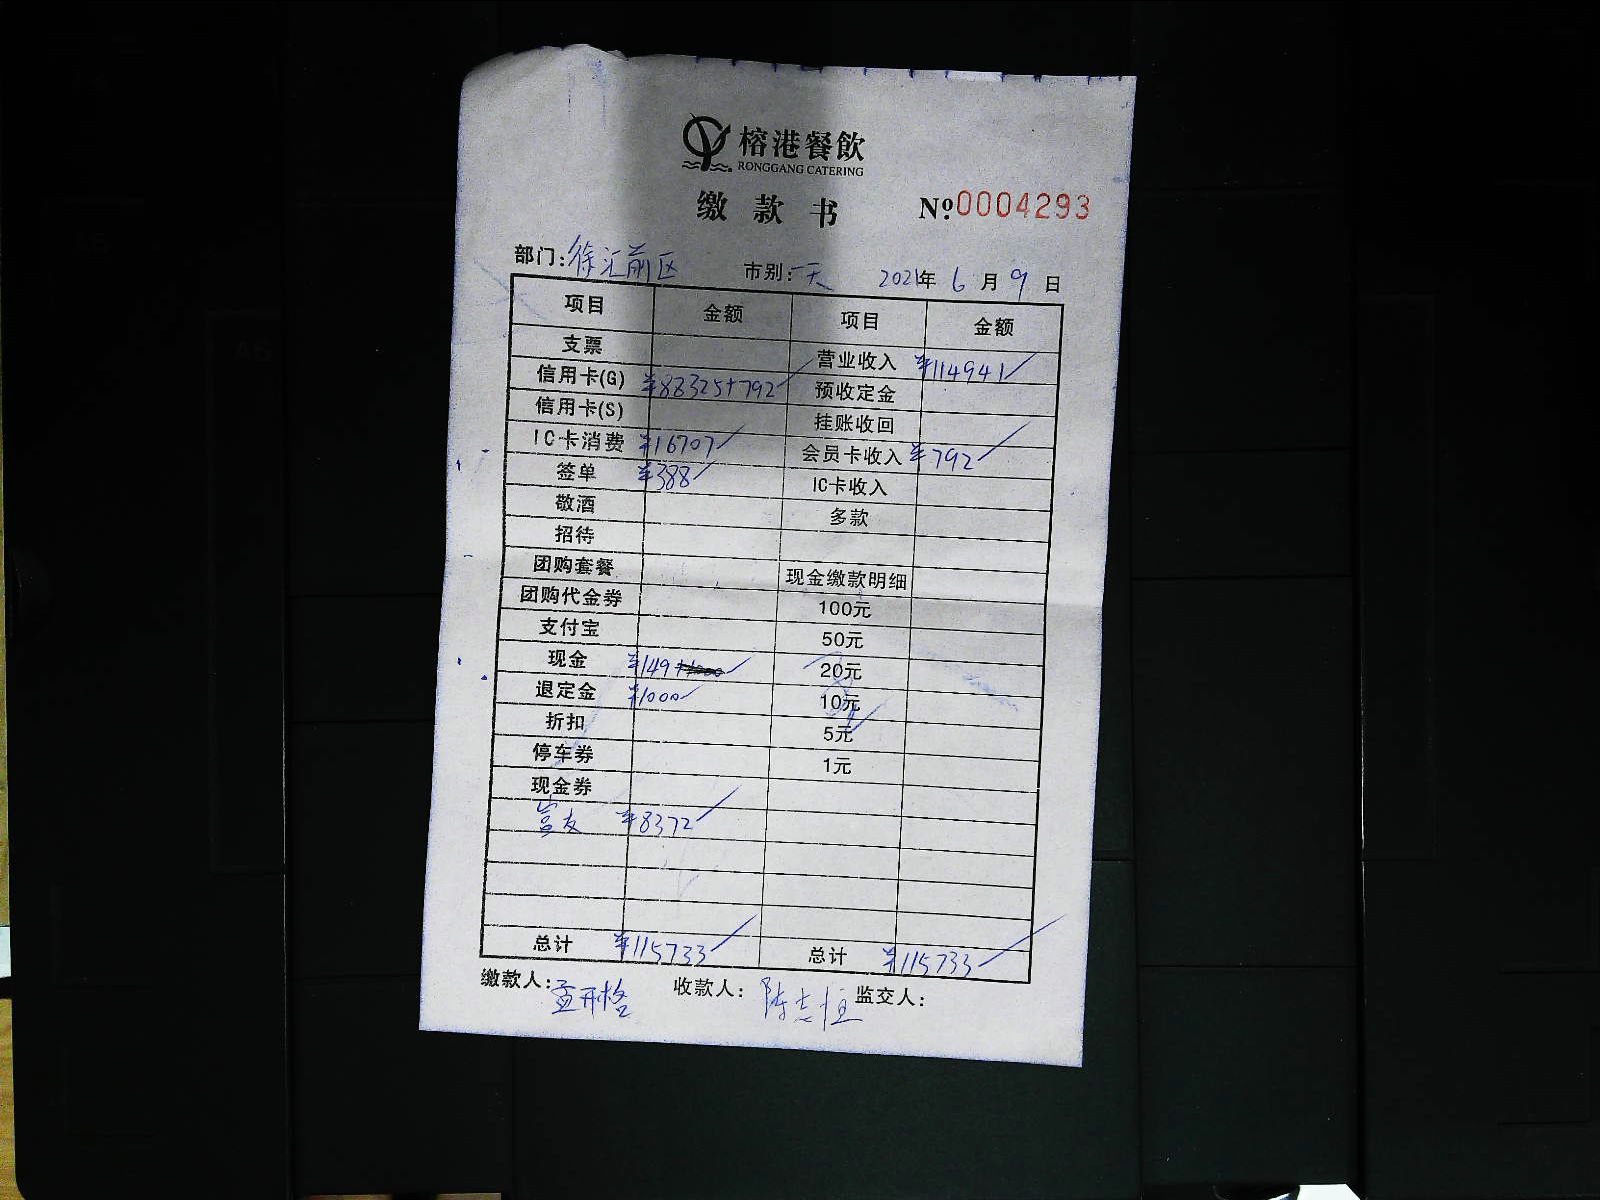 榕港餐飲
RONGGANG CATERING
缴款书 №0004293
部门:徐汇前区 市别:一天 2021年6月9日
项目 金额 项目 金额
支票 营业收入 ¥114941
信用卡(G) ¥88325+792 预收定金
信用卡(S) 挂账收回
IC卡消费 ¥16707 会员卡收入 ¥792
签单 ¥388 IC卡收入
敬酒 多款
招待
团购套餐 现金缴款明细
团购代金券 100元
支付宝 50元
现金 ¥149 20元
退定金 ¥1000 10元
折扣 5元
停车券 1元
现金券
富友 ¥8372
总计 ¥115733 总计 ¥115733
缴款人:孟开格 收款人:陈志恒 监交人: